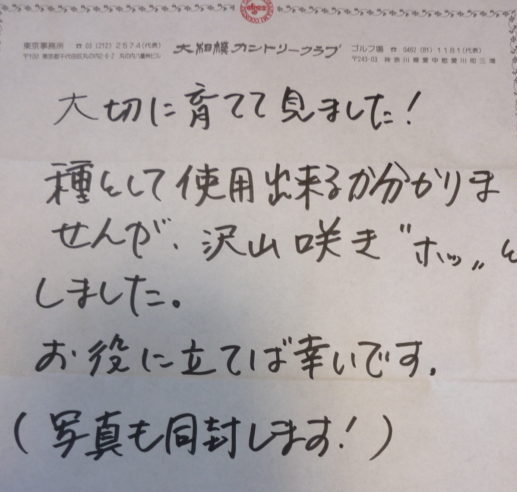 東京事務所 ☎ 03 (212) 2574 (代表)
大相模カントリークラブ
ゴルフ場 ☎ 0462 (81) 1181 (代表)
〒243-03 神奈川県愛甲郡愛川町三増
大切に育てて見ました！
種として使用出来るか分かりま
せんが、沢山咲き〝ホッ〟と
しました。
お役に立てば幸いです。
(写真も同封します！)